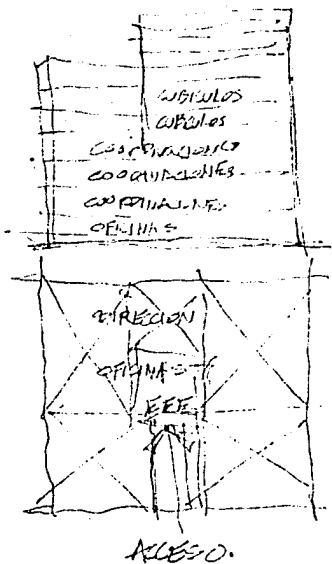 CUBICULOS
CUBICULOS
COORDINACIONES
COORDINACIONES
COORDINACIONES
OFICINAS
DIRECCION
OFICINAS
EEE
ACCESO.